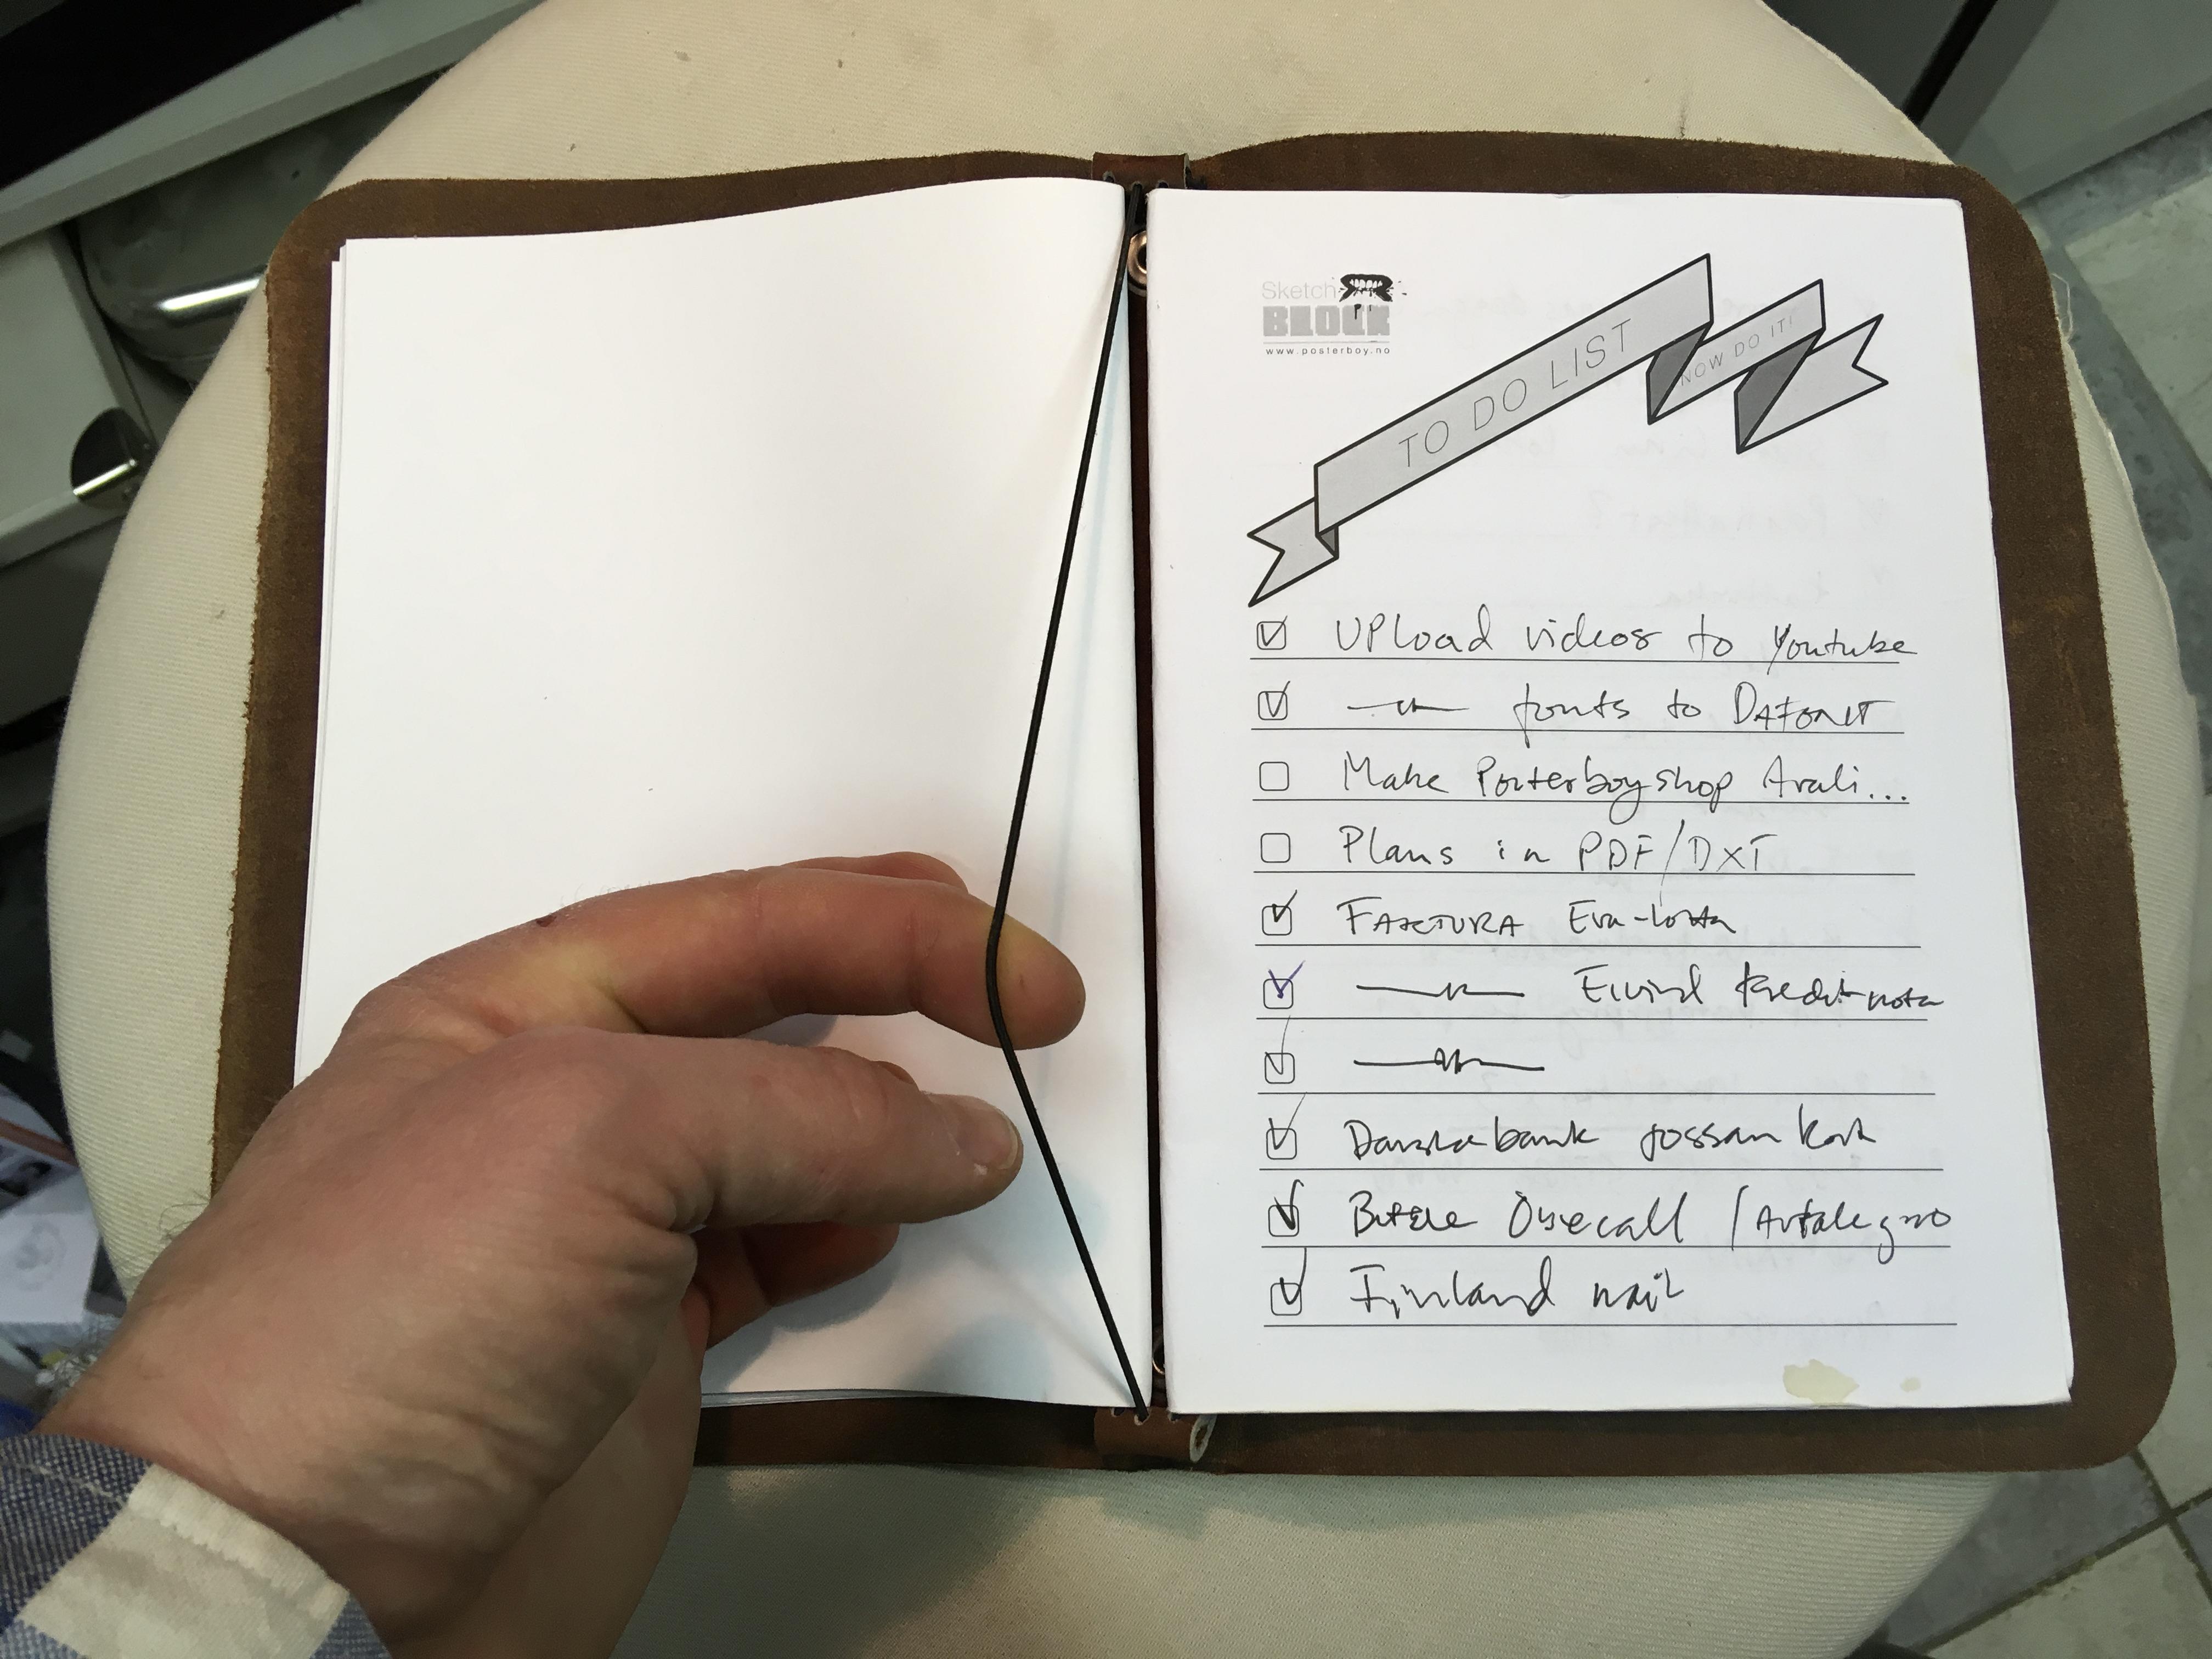 Sketch
BLOCK
www.posterboy.no
TO DO LIST
NOW DO IT!
UPload videos to Youtube
fonts to DAFONT
Make Posterboyshop Avali...
Plans in PDF/DXF
FAKTURA Eva-Lotta
Eivind kreditnota
Danskebank kort
Öyecall /Avtalegiro
Finland mail